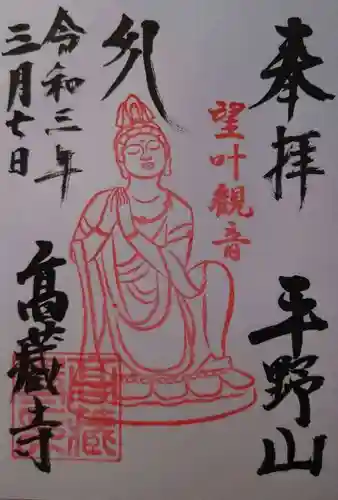 奉拝
平野山
望叶観音
久
令和三年
三月七日
高蔵寺